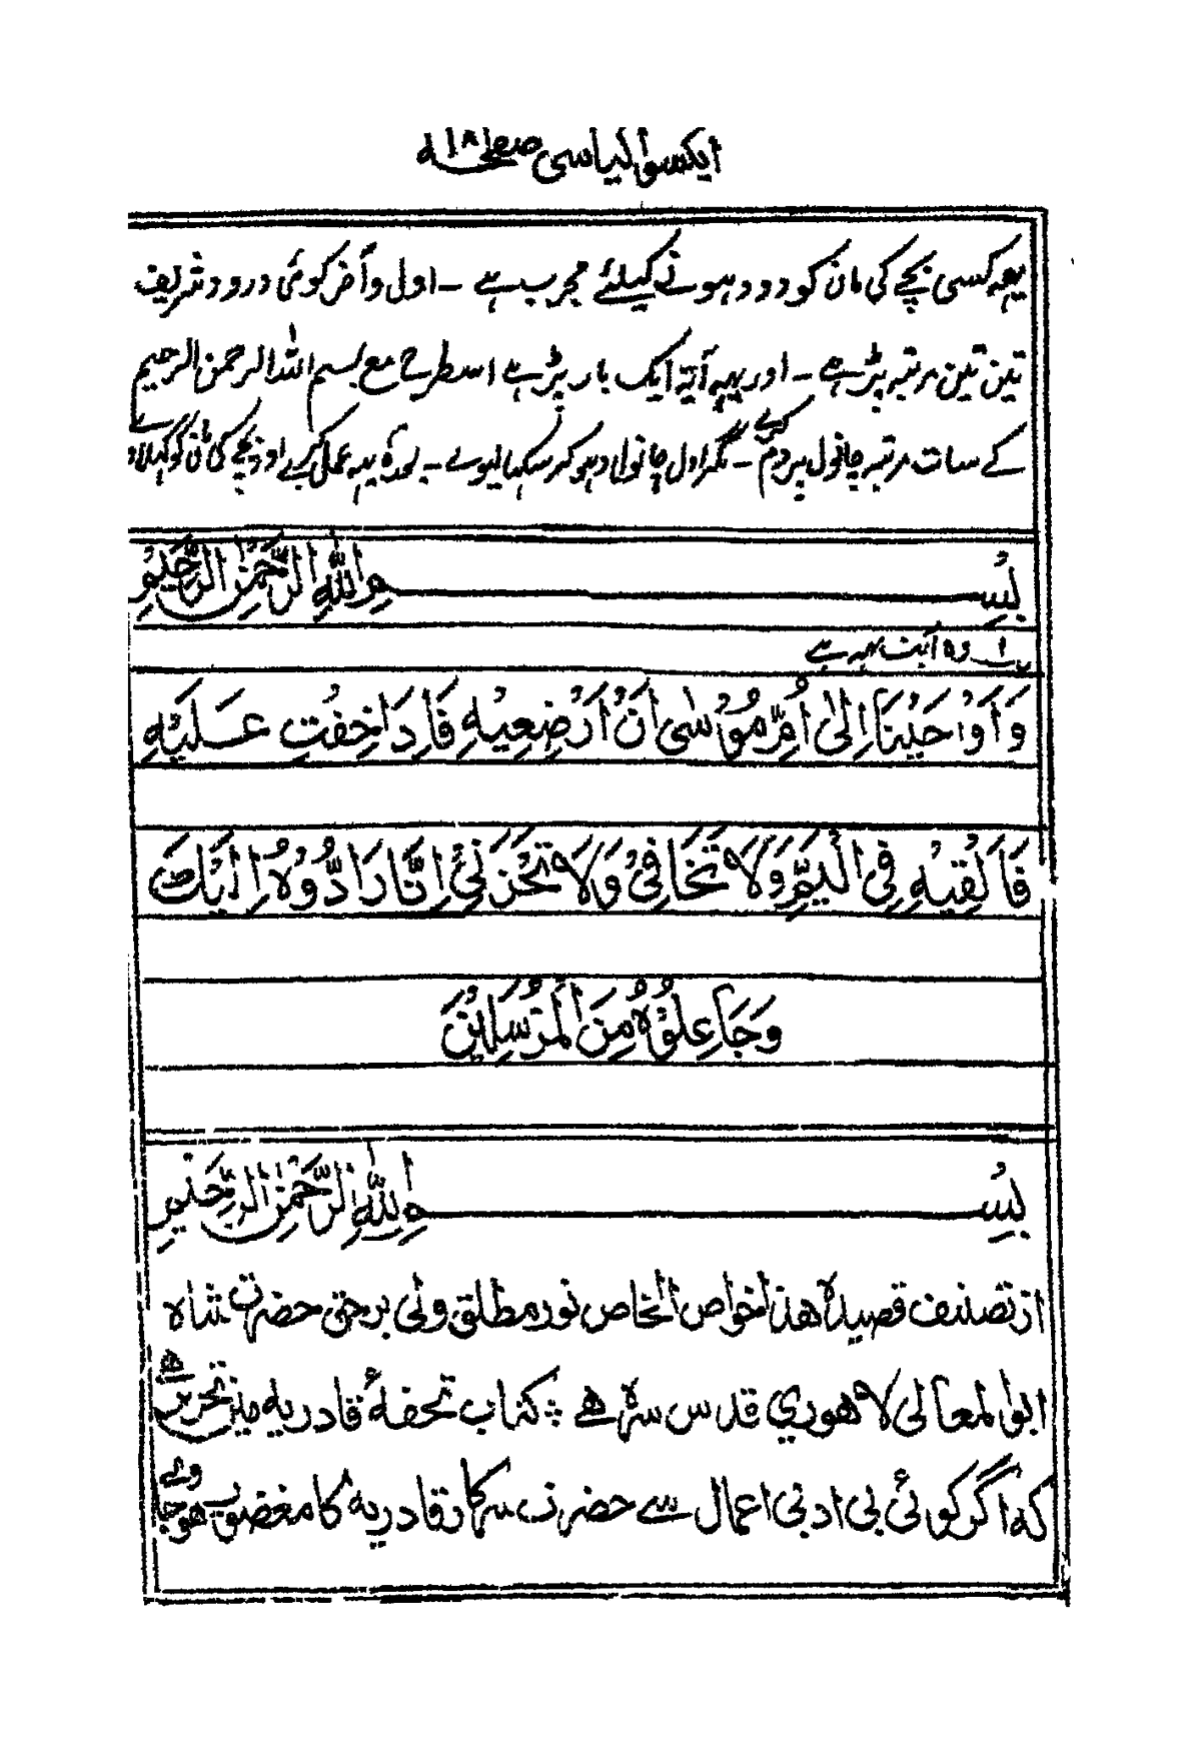 ایکسوا کیاسی صفحہ ۱۸۱
یہہ کسی بچے کی مان کو دودہ ہونے کیلئے مجرب ہے ۔ اول و آخر کوئی درود شریف
تین تین مرتبہ پڑہے ۔ اور یہہ آیۃ ایک بار پڑہے اسطرح مع بسم اللہ الرحمن الرحیم
کے سات مرتبہ چانول پر دم کرے ۔ مگر اول چانول دہو کر سکہا لیوے ۔ بعدہٗ یہہ عمل کرے اور بچے کی مان کو کہلاوے
بِسْــــــــــــمِ اللّٰهِ الرَّحْمٰنِ الرَّحِيْمِ
وہ آیت یہہ ہے
وَاَوْحَيْنَا اِلىٰ اُمِّ مُوْسٰى اَنْ اَرْضِعِيْهِ فَاِدَاخِفْتِ عَلَيْهِ
فَاَلْقِيْهِ فِى الْيَمِّ وَلَا تَخَافِىْ وَلَا تَحْزَنِىْ اِنَّا رَادُّوْهُ اِلَيْكَ
وَجَاعِلُوْهُ مِنَ الْمُرْسَلِيْنَ
بِسْــــــــــــمِ اللّٰهِ الرَّحْمٰنِ الرَّحِيْمِ
از تصنیف قصیدہ ھذا خواص الخاص نور مطلق ولی برحق حضرت شاہ
ابوالمعالی لاھوري قدس سرہٗ ھے ؞ کتاب تحفۂ قادریہ مین تحریر ھے
کہ اگر کوئی بی ادبی اعمال سے حضرت سرکار قادریہ کا مغضوب ھوجاوے